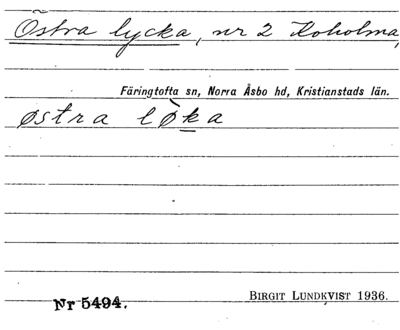 Östra lycka, nr 2 Koholma,
Färingtofta sn, Norra Åsbo hd, Kristianstads län.
østra lø̀ka
Nr 5494.
BIRGIT LUNDKVIST 1936.